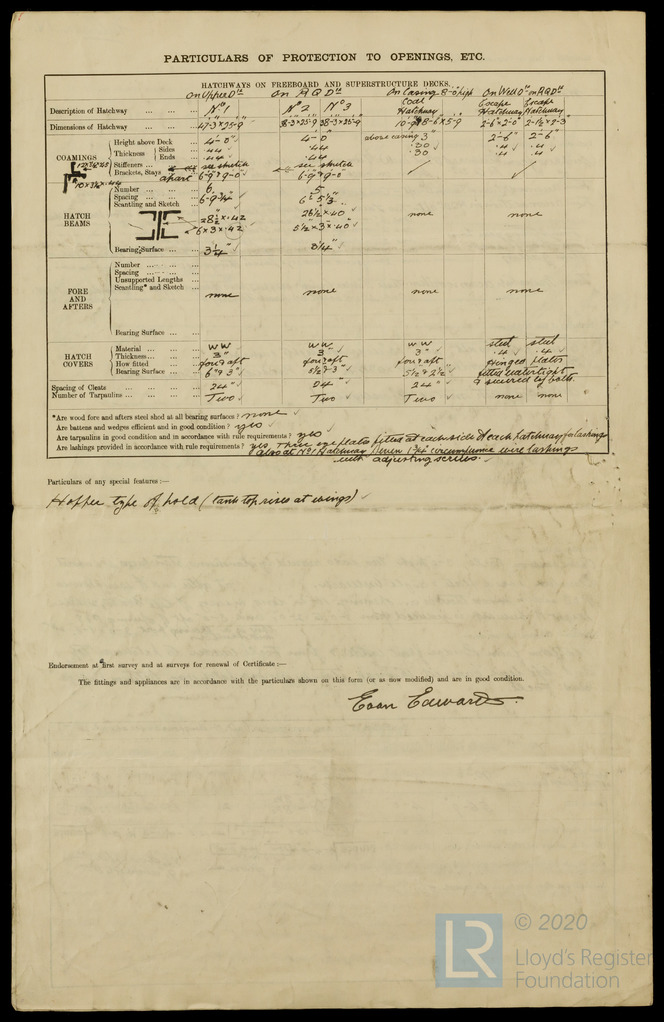 PARTICULARS OF PROTECTION TO OPENINGS, ETC.
HATCHWAYS ON FREEBOARD AND SUPERSTRUCTURE DECKS.
On Upper Dk On R Q Dk On Casing 8'-0" high On Well Dk on RQDk
Description of Hatchway ... ... ... No 1 No 2 No 3 Coal Hatchway Escape Hatchway Escape Hatchway
Dimensions of Hatchway ... ... 47-3 x 25-9 38-3 x 25-9 38-3 x 25-9 2-6 x 2-0
COAMINGS
Height above Deck ... 4'-0" 4'-0" above casing 3" 2'-6" 2'-6"
Thickness Sides ... .44 .44 .20 .4 .4
Ends ... .44 .44 .30 .4 .4
Stiffeners ... see sketch see sketch
Brackets, Stays apart 6-9 & 9-0 6-9 & 9-0
HATCH BEAMS
Number ... ... 6 5
Spacing ... ... 6-9¾
Scantling and Sketch 28½ x .42 26½ x .40 none none
6 x 3 x .42 5½ x 3 x .40
Bearing Surface ... 3¼" 3¼"
FORE AND AFTERS
Number ... ...
Spacing ... ...
Unsupported Lengths ...
Scantling* and Sketch none none none none
Bearing Surface ... ...
HATCH COVERS
Material ... ... W W W W W W steel steel
Thickness ... ... 3" 3" 3" .4 .4
How fitted ... fore & aft fore & aft fore & aft Hinged plates
Bearing Surface ... 6" & 3" 5½ & 3" 5½ & 2½" fitted watertight
& secured by bolts.
Spacing of Cleats ... ... 24" 24" 24"
Number of Tarpaulins ... ... Two Two Two none none
*Are wood fore and afters steel shod at all bearing surfaces? none
Are battens and wedges efficient and in good condition? yes
Are tarpaulins in good condition and in accordance with rule requirements? yes
Are lashings provided in accordance with rule requirements? yes Three eyeplates fitted at each side of each hatchway for lashings
also at No 1 Hatchway 1¾" circumference wire lashings
with adjusting screws.
Particulars of any special features:—
Hopper type of hold (tank top rises at wings)
Endorsement at first survey and at surveys for renewal of Certificate:—
The fittings and appliances are in accordance with the particulars shown on this form (or as now modified) and are in good condition.
Evan Edwards.
LR
© 2020
Lloyd's Register
Foundation